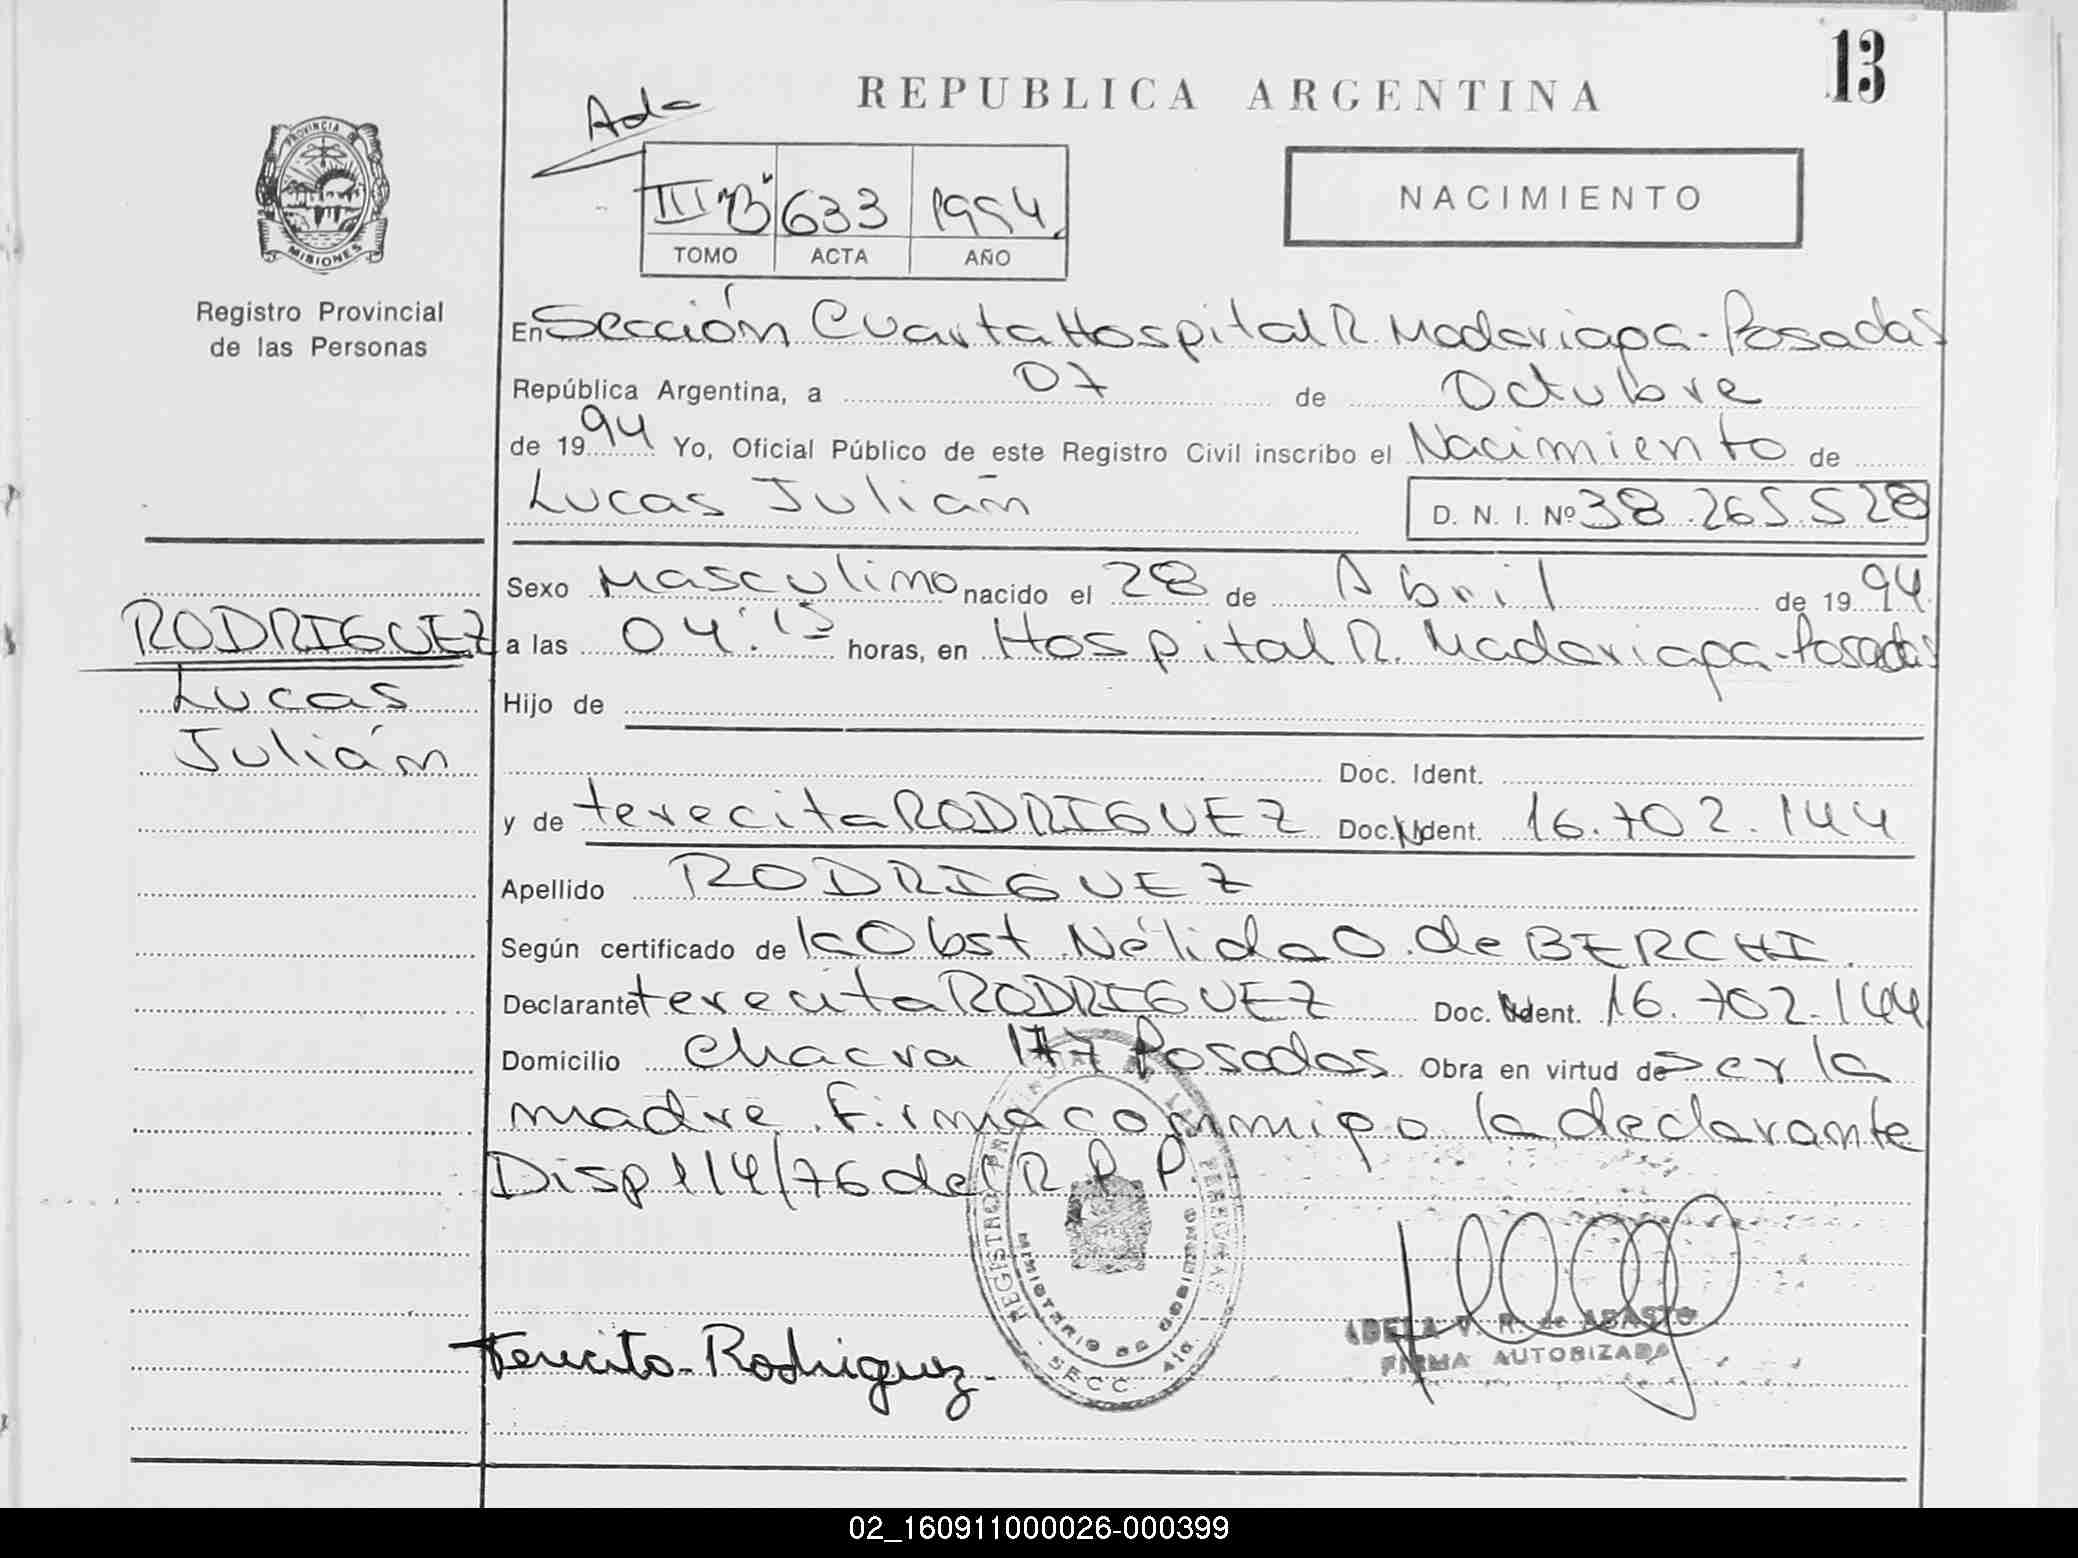 13
REPUBLICA ARGENTINA
Ada
III "B" 633 1994
TOMO ACTA AÑO
NACIMIENTO
PROVINCIA DE
MISIONES
Registro Provincial
de las Personas
En Sección Cuarta Hospital R. Madariaga - Posadas
República Argentina, a 07 de Octubre
de 1994 Yo, Oficial Público de este Registro Civil inscribo el Nacimiento de
Lucas Julián D. N. I. Nº 38.265.528
Sexo Masculino nacido el 28 de Abril de 1994
RODRIGUEZ
Lucas
Julián
a las 04:15 horas, en Hospital R. Madariaga - Posadas
Hijo de
Doc. Ident.
y de terecita RODRIGUEZ Doc. Ident. 16.702.144
Apellido RODRIGUEZ
Según certificado de la Obst. Nélida O. de BERCHI.
Declarante terecita RODRIGUEZ Doc. Ident. 16.702.144
Domicilio Chacra 177 Posadas Obra en virtud de ser la
madre. Firma conmigo la declarante
Disp 114/76 del R. P. P.
REGISTRO
MINISTERIO DE GOBIERNO
SECC. 4ta.
Terecita Rodriguez.
ADELA V. R. de ABASTO
FIRMA AUTORIZADA
02_160911000026-000399